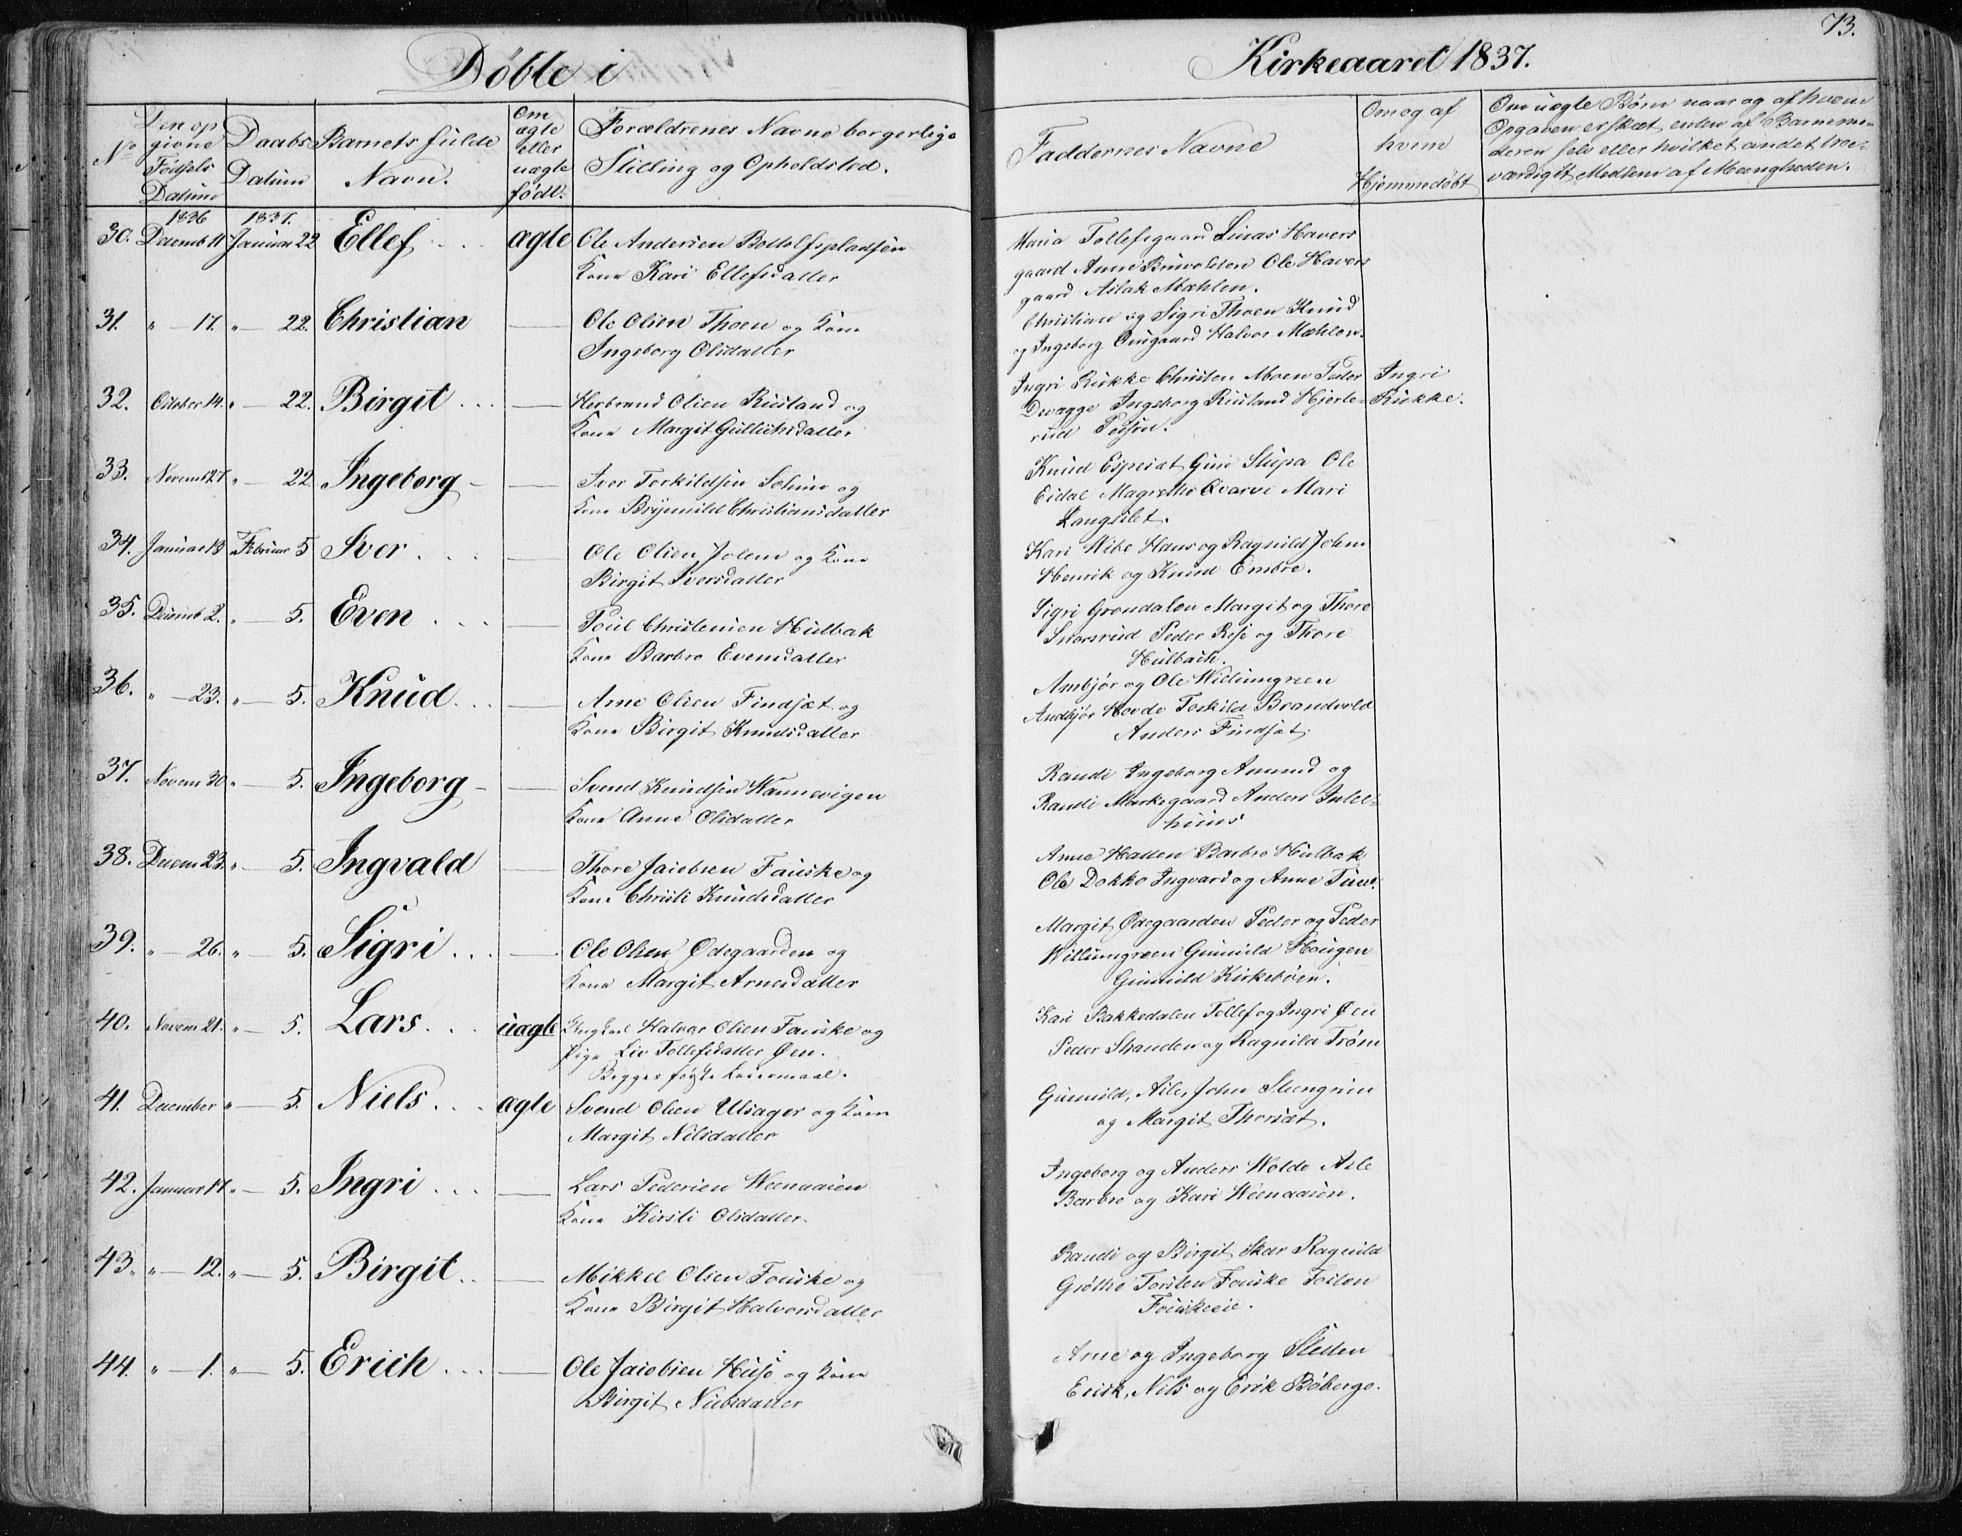 73.
Døbte i
Kirkeaaret 1837.
No
Den op
givne
Fødsels
Datum
Daabs
Datum
Barnets fulde
Navn.
Om
ægte
eller
uægte
født.
Forældrenes Navne borgerlige
Stilling og Opholdsted.
Faddernes Navne
Om og af
hvem
Hjemmedøbt
Om uægte Børn naar og af hvem
Opgaven er skæt, enten af Barnemo-
deren selv eller hvilket andet tro-
værdigt Medlem af Mængheden.
1836 1837.
30. Decemb 11 Januar 22 Ellef ægte Ole Andersen Bottolfspladsen
Kone Kari Ellefsdatter
Maria Tollefsgaard Havers
gaard Anne Ole Havers
gaard Aslak Mæhlen.
31. " 17. " 22. Christian Ole Olsen Thoen og Kone
Ingeborg Olsdatter
Christian og Sigri Thoen Knud
og Ingeborg Halvor Mæhlen.
32. October 14. " 22. Birgit Herbrand Olsen Rusland og
Kone Margit Gullichsdatter
Ingri Rukke Christen Moen Peder
Devegge Ingeborg Rusland Hjerle-
rud
Ingri
Rukke.
33. Novemb 27 " 22 Ingeborg Iver Torkildsen og
Kone Brynild Christiansdatter
Knud Espesæt Guri Stupa Ole
Eidal Magrethe Qvarve Mari
Langslet.
34. Januar 18 Februar 5 Iver Ole Olsen Jolem og Kone
Birgit Iversdatter
Kari Wibe Hans og Ragnild Jolem
Henrik og Knud Embre.
35. Decemb 2. " 5. Even Poul Christensen Hulbak
Kone Barbro Evensdatter
Sigri Grøndalen Margit og Thore
Snorsrud Peder og Thore
Hulbach.
36. " 23. " 5. Knud Arne Olsen Findsæt og
Kone Birgit Knudsdatter
Ambjør og Ole Willumgreen
Andbjør Hovde Torkild Brandvold
Anders Findsæt.
37. Novem 30 " 5. Ingeborg Svend Knudsen Wannevigen
Kone Anne Olsdatter
Randi Ingeborg Amund og
Randi Markegaard Anders
huus
38. Decem 23. " 5. Ingvald Thore Jacobsen Fauske og
Kone Christi Knudsdatter
Anne Hallen Barbro Hulbak
Ole Dokko Ingvard og Anne
39. " 26. " 5. Sigri Ole Olsen Ødegaarden og
Kone Margit Arnesdatter
Margit Ødegaarden Peder og Peder
Willumgreen Gunuld Hougen
Gunuld Kirkebøen.
40. Novem 21. " 5. Lars uægte Ungkarl Halvor Olsen Fauske og
Pige Liv Tollefsdatter Øen.
Begges første Leiermaal.
Kari Bakkedalen Tollef og Ingri Øen
Peder Stranden og Ragnild Trøm
41. December " 5. Niels ægte Svend Olsen Ulsager og Kone
Margit Nilsdatter
Gunuld, Asle, John Steengrim
og Margit Thorsæt.
42. Januar 17. " 5. Ingri Lars Pedersen Weenaaien
Kone Kirsti Olsdatter.
Ingeborg og Anders Wolde Asle
Barbro og Kari Weenaaien.
43. " 12. " 5. Birgit Mikkel Olsen Fouske og
Kone Birgit Halvorsdatter
Randi og Birgit Skar Ragnild
Grøthe Torsten Fouske
Fouskeeie.
44. " 1. " 5. Erich Ole Jacobsen Huso og Kone
Birgit Nielsdatter
Arne og Ingeborg Sletten
Erik, Nils og Erik Bøberge.